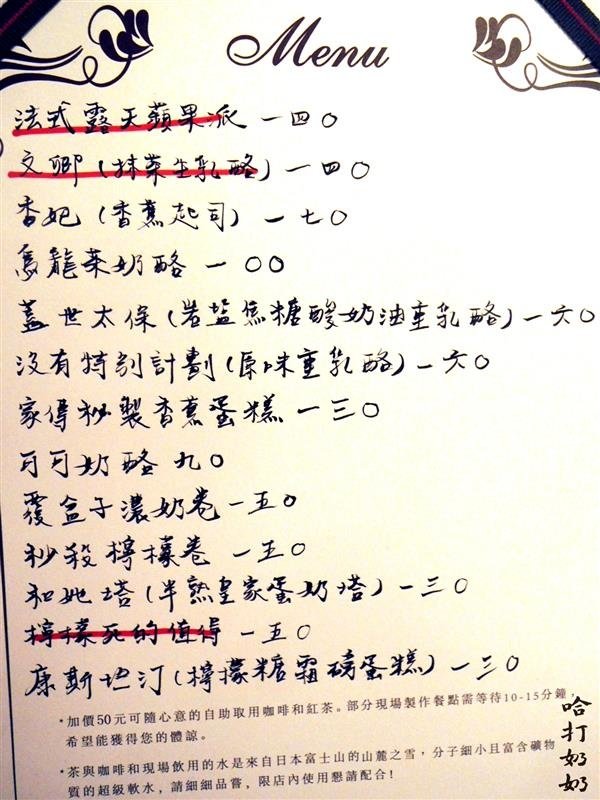 Menu
法式露天蘋果派 一四〇
文卿(抹茶生乳酪) 一四〇
香妃(香蕉起司) 一七〇
烏龍茶奶酪 一〇〇
蓋世太保(岩盐焦糖酸奶油重乳酪) 一六〇
没有特別計劃(原味重乳酪) 一六〇
家傳秘製香蕉蛋糕 一三〇
可可奶酪 九〇
覆盆子濃奶卷 一五〇
秒殺檸檬卷 一五〇
和她塔(半熟皇家蛋奶塔) 一三〇
檸檬死的值得 一五〇
康斯坦汀(檸檬糖霜磅蛋糕) 一三〇
•加價50元可隨心意的自助取用咖啡和紅茶。部分現場製作餐點需等待10-15分鐘,
希望能獲得您的體諒。
•茶與咖啡和現場飲用的水是來自日本富士山的山麓之雪,分子細小且富含礦物
質的超級軟水,請細細品嘗,限店內使用懇請配合!
哈打奶奶